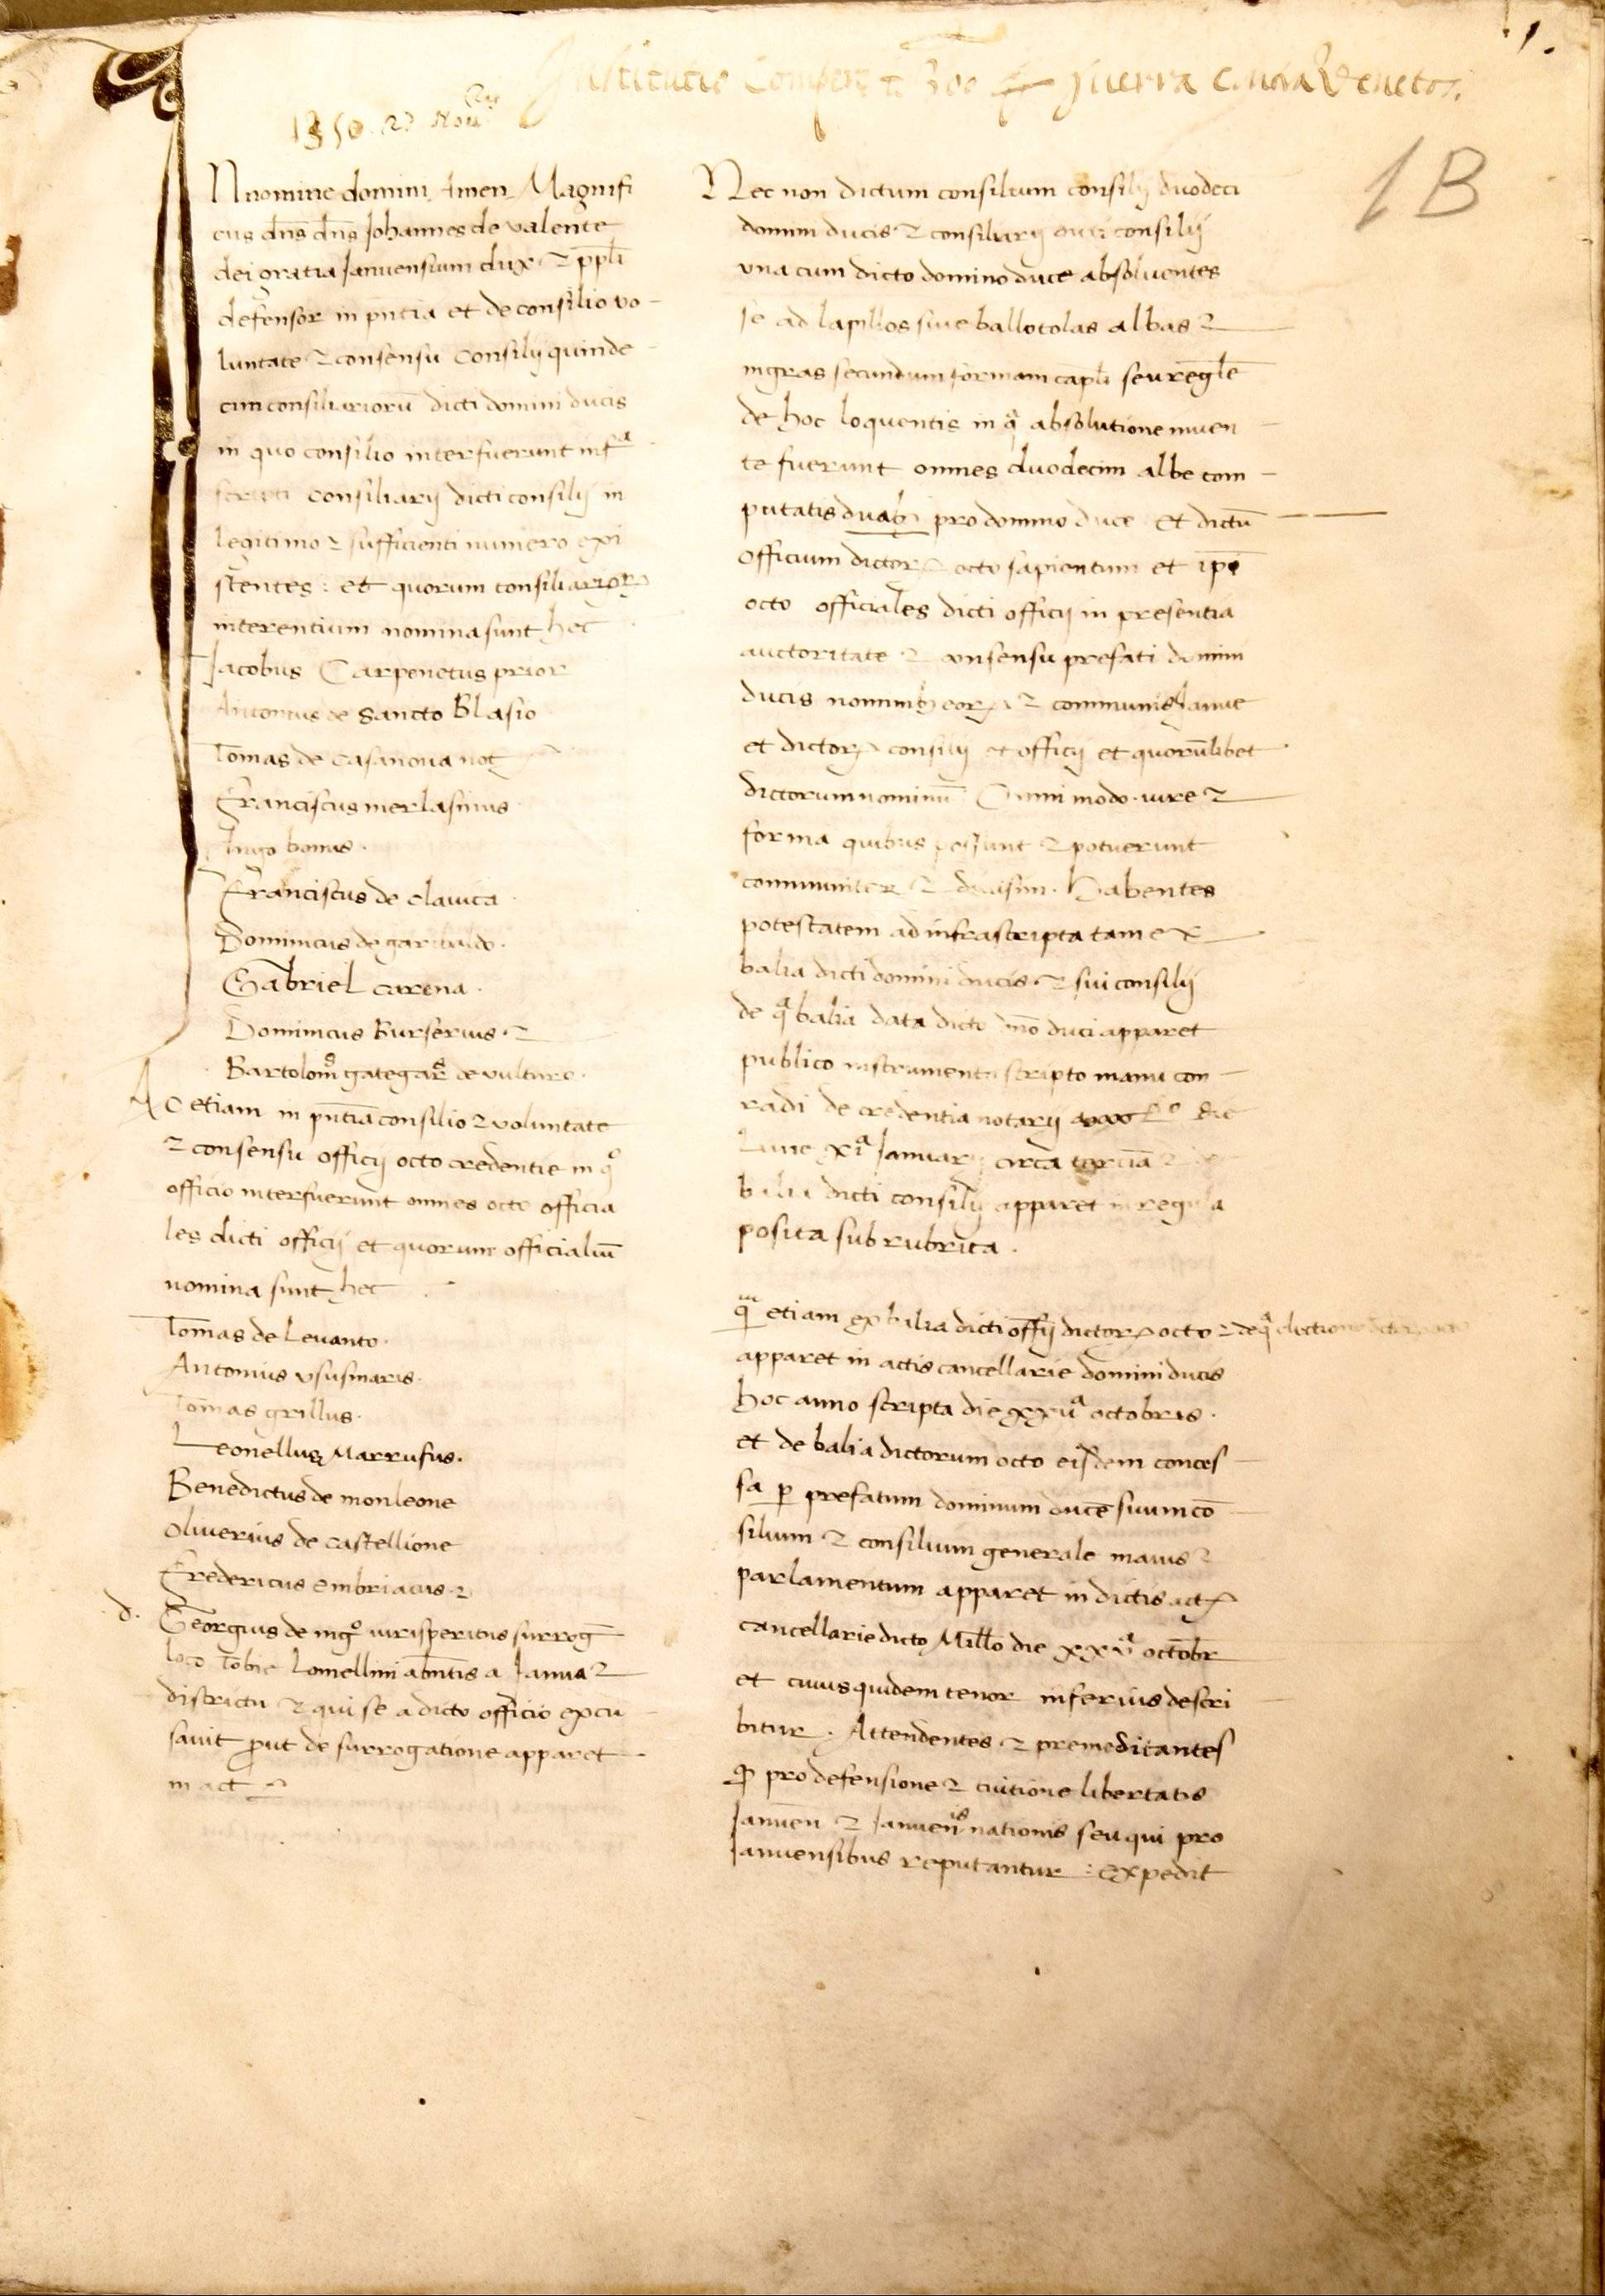 1.
1350. 27 Nou
guerra contra Venetos.
1B
IN nomine domini Amen Magnifi
cus dn̄s dn̄s Johannes de valente
dei gratia Januensium dux ⁊ ppl̄i
defensor in pn̄tia et de consilio vo
luntate ⁊ consensu Consilij quinde
cim consiliariorū dicti domini ducis
in quo consilio interfuerunt infᵃ
scripti consiliarij dicti consilij in
legitimo ⁊ sufficienti numero exi
stentes: et quorum consiliarioꝝ
interentium nomina sunt hec
Jacobus Carpenetus prior
Antonius de Sancto Blasio
Tomas de casanoua not
Franciscus merlasinus
bonus.
Franciscus de clauica.
Dominicus de garibaldo.
Gabriel carena.
Dominicus Burserius. ⁊
Bartolom⁹ gategar̄ de vulturo.
Ac etiam in pn̄tia consilio ⁊ voluntate
⁊ consensu officij octo credentie in qᵒ
officio interfuerunt omnes octo officia
les dicti officij et quorum officialiū
nomina sunt hec
Tomas de Leuanto.
Antonius vsusmaris.
Tomas grillus.
Leonellus Marrufus.
Benedictus de monleone
Oliuerius de castellione
Fredericus Embriacus. ⁊
d. Georgius de mgᵒ iurisperitus surroḡ
loco Tobie Lomellini abn̄tis a Janua ⁊
districtu ⁊ qui se a dicto officio excu
sauit ꝓut de surrogatione apparet
in act
Nec non dictum consilium consilij duodeci
domini ducis ⁊ consiliarij consilij
vna cum dicto domino duce absoluentes
se ad lapillos siue ballotolas albas ⁊
nigras secundum formam capl̄i seu regl̄e
de hoc loquentis in qᵃ absolutione inuen
te fuerunt omnes duodecim albe com
putatis duab; pro domino duce Et dictū
officium dictoꝝ octo sapientum et ip̄i
octo officiales dicti officij in presentia
auctoritate ⁊ consensu prefati domini
ducis nominib; eoꝝ ⁊ communis Janue
et dictoꝝ consilij et officij et quorūlibet
dictorum nominū Omni modo. iure ⁊
forma quibus possunt ⁊ potuerunt
communiter ⁊ diuisim. Habentes
potestatem ad infrascripta tam ex
balia dicti domini ducis. ⁊ sui consilij
de qᵃ balia data dicto dn̄o duci apparet
publico instrumento scripto manu con
radi de credentia notarij die
Lune xiᵃ Januarij circa terciā ⁊
balia dicti consilij apparet in regula
posita sub rubrica.
qᵐ etiam ex balia dicti offij dictoꝝ octo ⁊ de qᵃ electione
apparet in actis cancellarie domini ducis
hoc anno scripta die octobris.
et de balia dictorum octo eisdem conces
sa ꝑ prefatum dominum ducē suum cō
silium ⁊ consilium generale maius ⁊
parlamentum apparet in dictis act
cancellarie dicto Mill̄o die octobr̄
et cuius quidem tenor inferius descri
bitur. Attendentes ⁊ premeditantes
ꝙ pro defensione ⁊ tuitione libertatis
Januen̄ ⁊ Januen̄is nationis seu qui pro
Januensibus reputantur: expedit